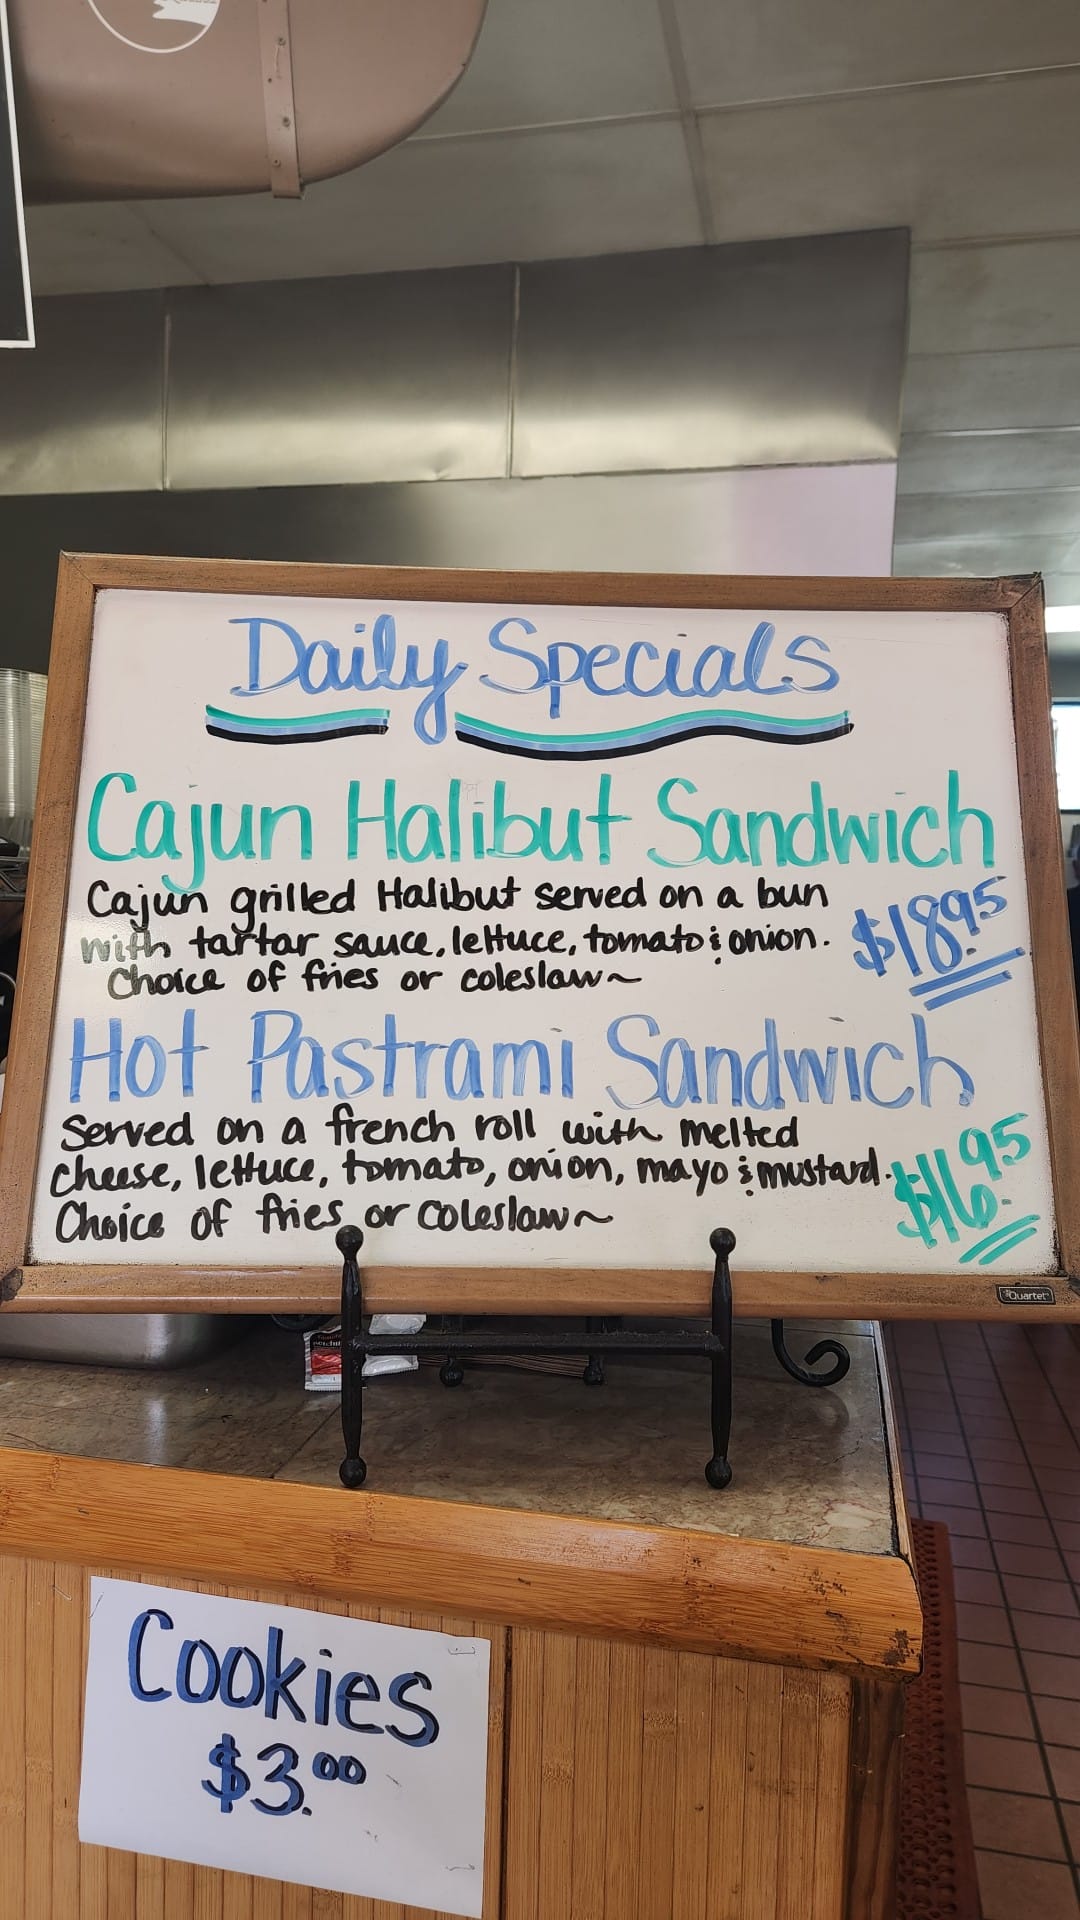 Daily Specials
Cajun Halibut Sandwich
Cajun grilled Halibut served on a bun
with tartar sauce, lettuce, tomato & onion.
Choice of fries or coleslaw~
$18.95
Hot Pastrami Sandwich
Served on a french roll with melted
cheese, lettuce, tomato, onion, mayo & mustard.
Choice of fries or coleslaw~
$16.95
Quartet
Cookies
$3.00